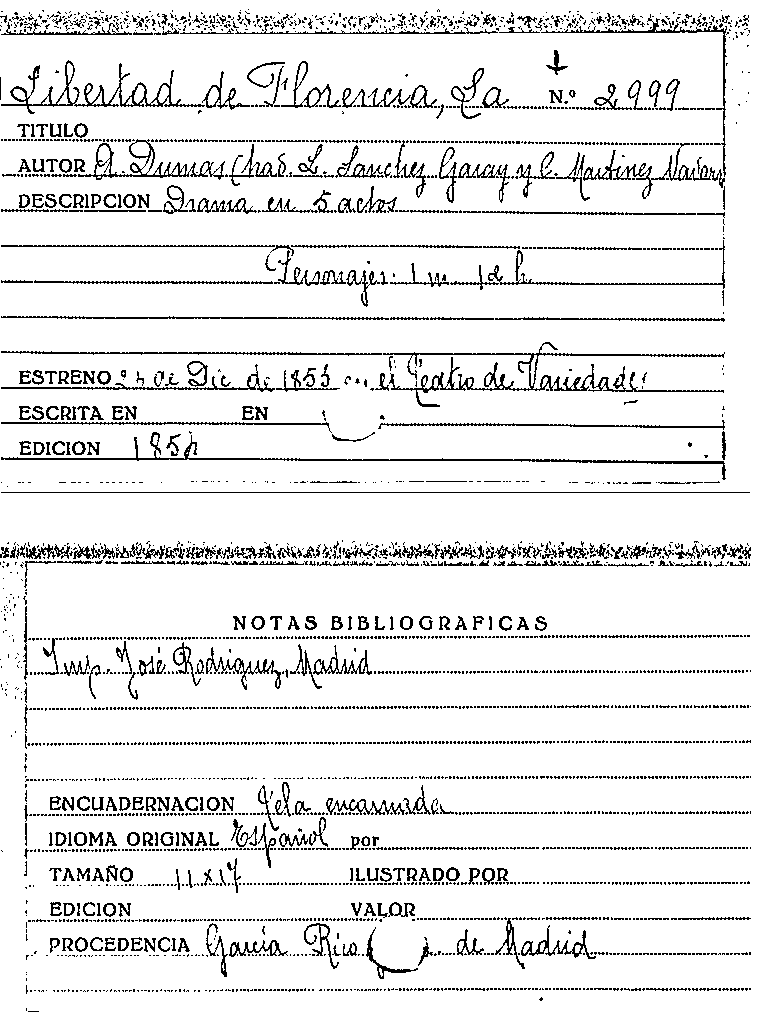 Libertad de Florencia, La N.º 2999
TITULO
AUTOR A. Dumas (trad. L. Sanchez Garay y C. Martinez Navarro
DESCRIPCION Drama en 5 actos
Personajes: 1 m. 12 h.
ESTRENO 24 de Dic de 1853 en el Teatro de Variedades
ESCRITA EN EN
EDICION 1854
NOTAS BIBLIOGRAFICAS
Imp. José Rodriguez, Madrid
ENCUADERNACION Tela encarnada
IDIOMA ORIGINAL Español por
TAMAÑO 11x17 ILUSTRADO POR
EDICION VALOR
PROCEDENCIA García Rico de Madrid